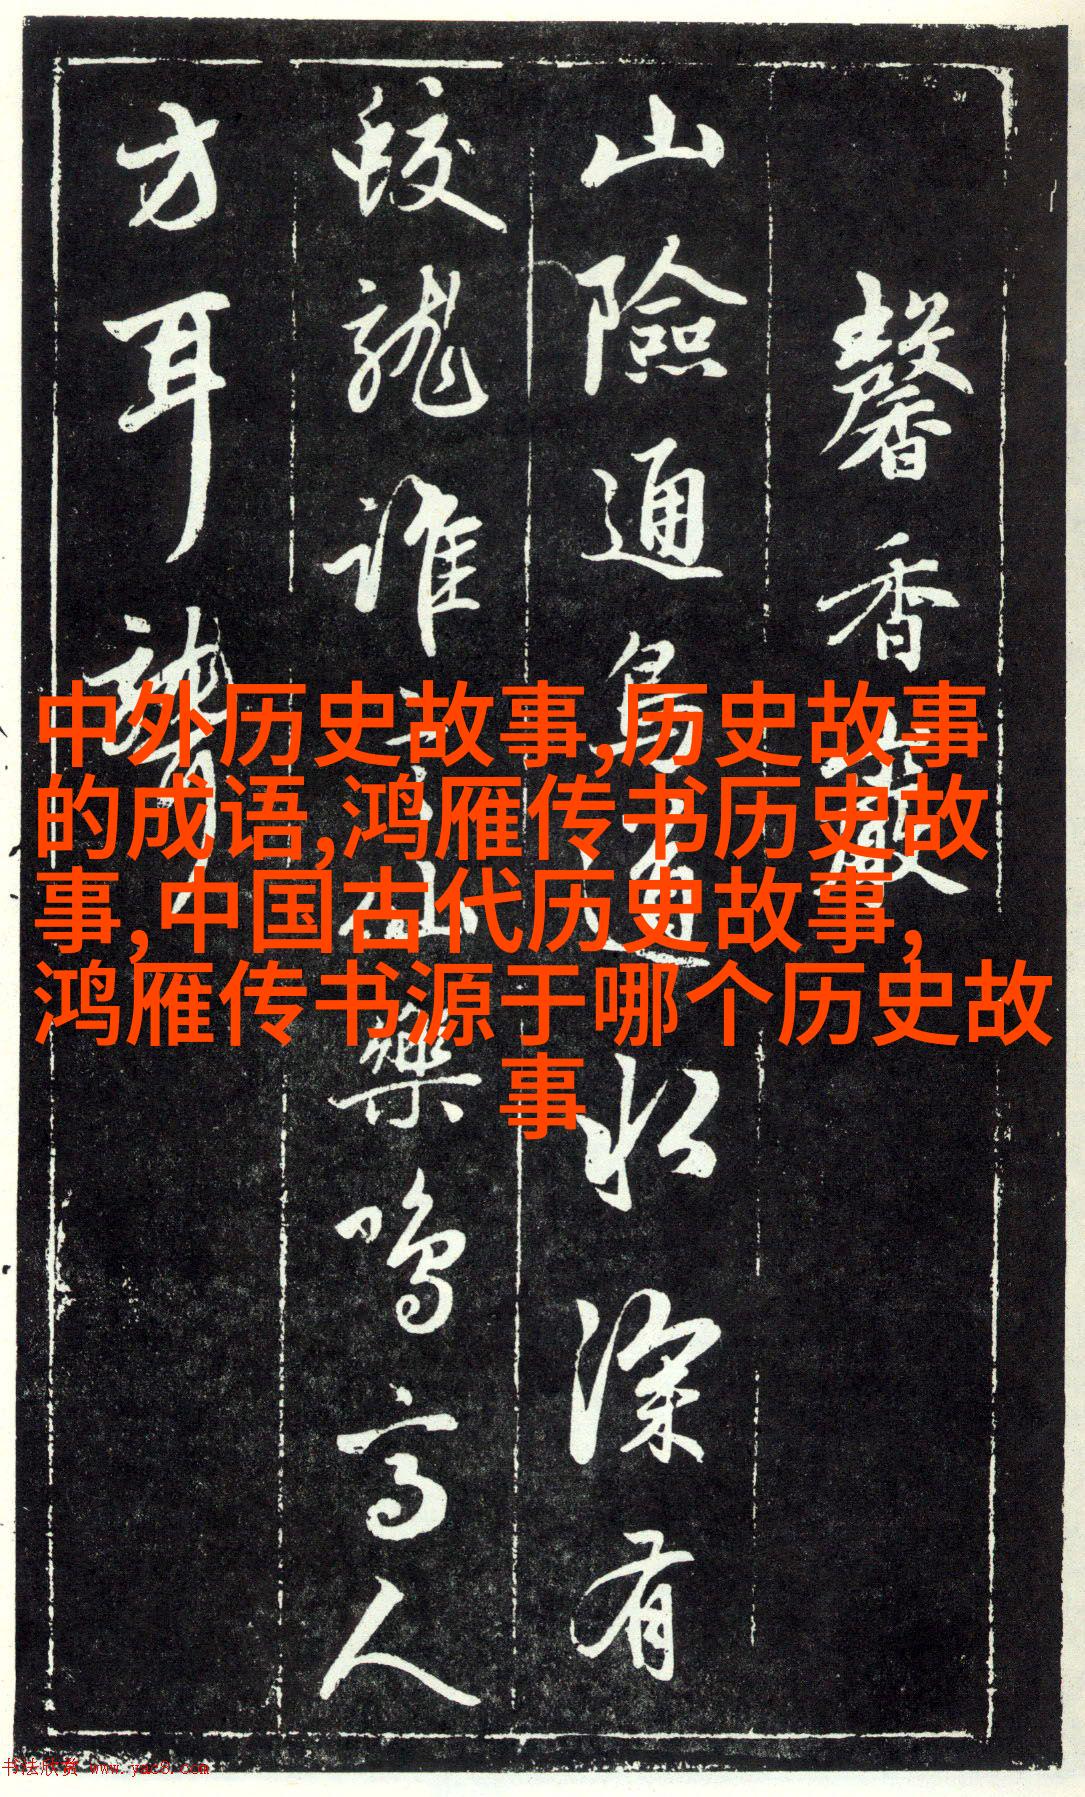 馨香嚴
山險通鳥道水深有
蛟龍誰主樂鳴高人
方耳聾
中外历史故事,历史故事
的成语,鸿雁传书历史故
事,中国古代历史故事,
鸿雁传书源于哪个历史故
事
书法欣赏 www.yac8.com